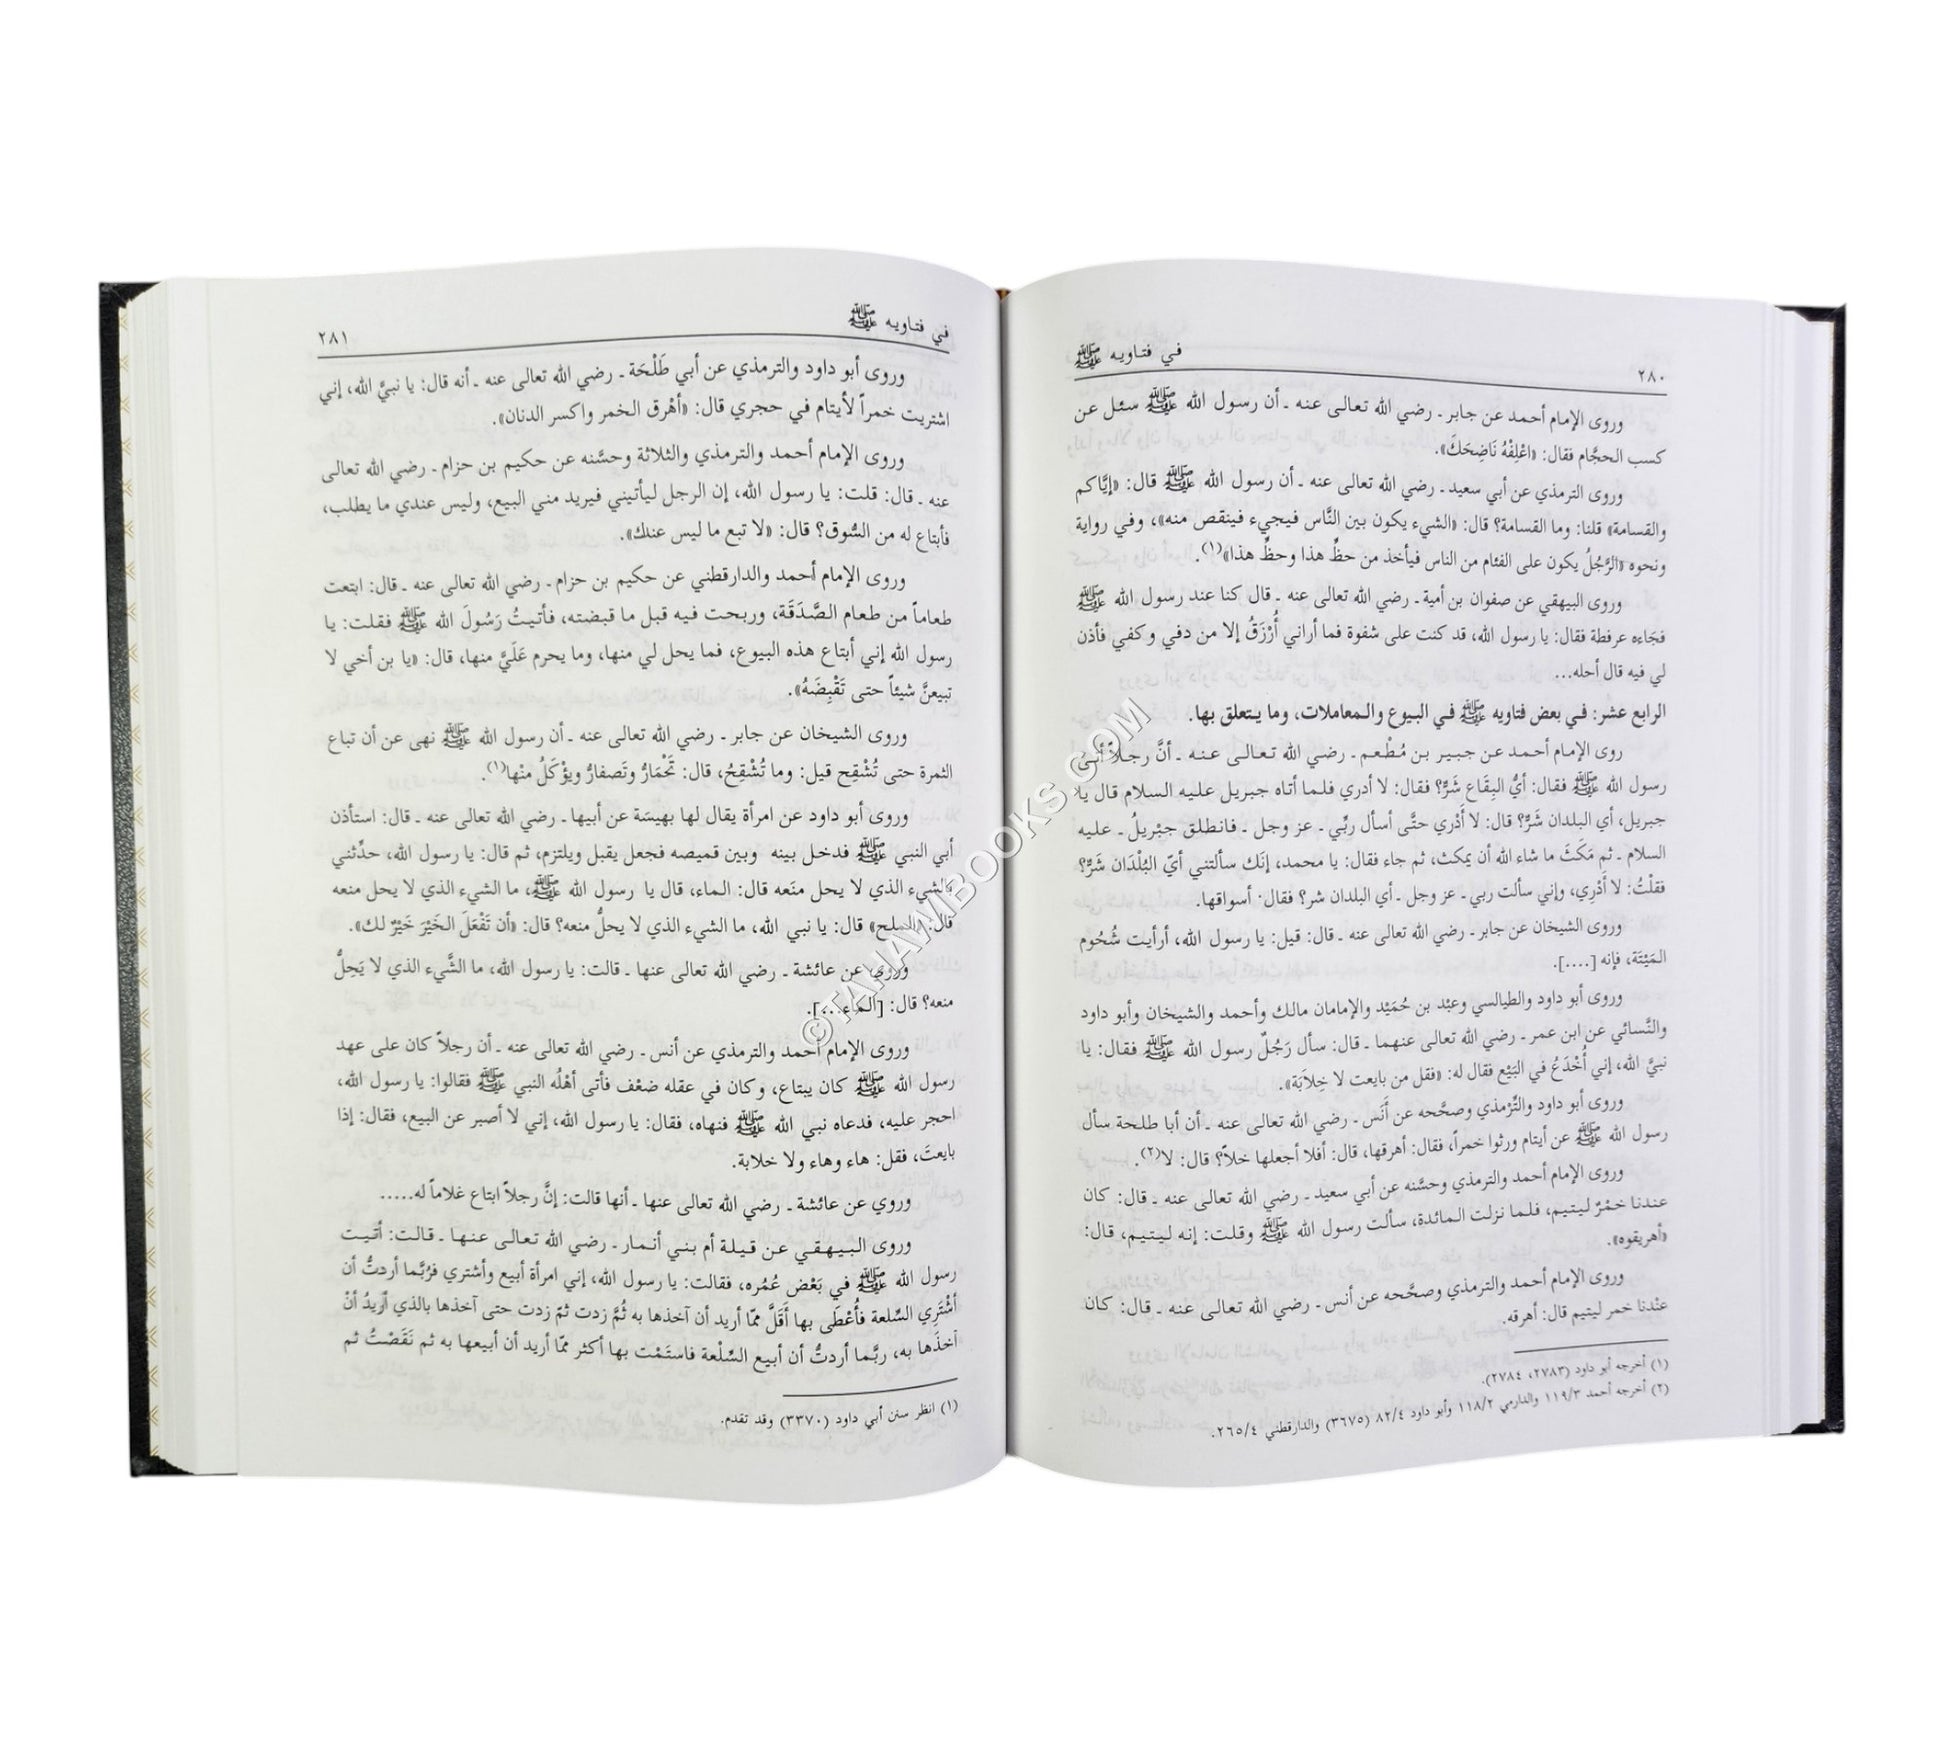 ٢٨٠
في فتاويه ﷺ
وروى الإمام أحمد عن جابر ـ رضي الله تعالى عنه ـ أن رسول الله ﷺ سئل عن
كسب الحجَّام فقال: «اعْلِفْهُ نَاضِحَكَ».
وروى الترمذي عن أبي سعيد ـ رضي الله تعالى عنه ـ أن رسول الله ﷺ قال: «إيَّاكم
والقسامة» قلنا: وما القسامة؟ قال: «الشيء يكون بين النَّاس فيجيء فينقص منه»، وفي رواية
ونحوه «الرَّجُلُ يكون على الفئام من الناس فيأخذ من حظِّ هذا وحظِّ هذا»(١).
وروى البيهقي عن صفوان بن أمية ـ رضي الله تعالى عنه ـ قال كنا عند رسول الله ﷺ
فجَاءه عرفطة فقال: يا رسول الله، قد كنت على شفوة فما أراني أُرْزَقُ إلا من دفي وكفي فأذن
لي فيه قال أحله...
الرابع عشر: في بعض فتاويه ﷺ في البيوع والمعاملات، وما يتعلق بها.
روى الإمام أحمد عن جبير بن مُطْعم ـ رضي الله تعالى عنه ـ أنَّ رجلاً أتى
رسول الله ﷺ فقال: أيُّ البِقَاع شَرٌّ؟ فقال: لا أدري فلما أتاه جبريل عليه السلام قال يا
جبريل، أي البلدان شَرٌّ؟ قال: لا أَدْري حتَّى أسأل ربِّي ـ عز وجل ـ فانطلق جبْريلُ ـ عليه
السلام ـ ثم مَكَثَ ما شاء الله أن يمكث، ثم جاء فقال: يا محمد، إنَك سألتني أيّ البُلْدَان شَرٌّ؟
فقلْتُ: لا أَدْرِي، وإني سألت ربي ـ عز وجل ـ أي البلدان شر؟ فقال: أسواقها.
وروى الشيخان عن جابر ـ رضي الله تعالى عنه ـ قال: قيل: يا رسول الله، أرأيت شُحُوم
المَيْتَة، فإنه [....].
وروى أبو داود والطيالسي وعبْد بن حُمَيْد والإمامان مالك وأحمد والشيخان وأبو داود
والنَّسائي عن ابن عمر ـ رضي الله تعالى عنهما ـ قال: سأل رَجُلٌ رسول الله ﷺ فقال: يا
نبيَّ الله، إني أُخْدَعُ في البَيْع فقال له: «فقل من بايعت لا خِلابَة».
وروى أبو داود والتِّرْمذي وصحَّحه عن أَنَس ـ رضي الله تعالى عنه ـ أن أبا طلحة سأل
رسول الله ﷺ عن أيتام ورثوا خمراً، فقال: أهرقها، قال: أفلا أجعلها خلاً؟ قال: لا(٢).
وروى الإمام أحمد والترمذي وحسَّنه عن أبي سعيد ـ رضي الله تعالى عنه ـ قال: كان
عندنا خمْرٌ ليتيم، فلما نزلت المائدة، سألت رسول الله ﷺ وقلت: إنه ليتيم، قال:
«أهريقوه».
وروى الإمام أحمد والترمذي وصحَّحه عن أنس ـ رضي الله تعالى عنه ـ قال: كان
عنْدنا خمر ليتيم قال: أهرقه.
(١) أخرجه أبو داود (٢٧٨٣، ٢٧٨٤).
(٢) أخرجه أحمد ١١٩/٣ والدارمي ١١٨/٢ وأبو داود ٨٢/٤ (٣٦٧٥) والدارقطني ٢٦٥/٤.
في فتاويه ﷺ
٢٨١
وروى أبو داود والترمذي عن أبي طَلْحَة ـ رضي الله تعالى عنه ـ أنه قال: يا نبيَّ الله، إني
اشتريت خمراً لأيتام في حجري قال: «أهْرق الخمر واكسر الدنان».
وروى الإمام أحمد والترمذي والثلاثة وحسَّنه عن حكيم بن حزام ـ رضي الله تعالى
عنه ـ قال: قلت: يا رسول الله، إن الرجل ليأتيني فيريد مني البيع، وليس عندي ما يطلب،
فأبتاع له من السُّوق؟ قال: «لا تبع ما ليس عندك».
وروى الإمام أحمد والدارقطني عن حكيم بن حزام ـ رضي الله تعالى عنه ـ قال: ابتعت
طعاماً من طعام الصَّدَقَة، وربحت فيه قبل ما قبضته، فأتيتُ رَسُولَ الله ﷺ فقلت: يا
رسول الله إني أبتاع هذه البيوع، فما يحل لي منها، وما يحرم عَلَيَّ منها، قال: «يا بن أخي لا
تبيعنَّ شيئاً حتى تَقْبِضَهُ».
وروى الشيخان عن جابر ـ رضي الله تعالى عنه ـ أن رسول الله ﷺ نهى عن أن تباع
الثمرة حتى تُشْقِح قيل: وما تُشْقِحُ، قال: تَحْمَارُّ وتَصفارُّ ويؤْكَلُ منْها(١).
وروى أبو داود عن امرأة يقال لها بهيسَة عن أبيها ـ رضي الله تعالى عنه ـ قال: استأذن
أبي النبي ﷺ فدخل بينه وبين قميصه فجعل يقبل ويلتزم، ثم قال: يا رسول الله، حدِّثني
بالشيء الذي لا يحل منَعه قال: الماء، قال يا رسول الله ﷺ، ما الشيء الذي لا يحل منعه
قال: الملح» قال: يا نبي الله، ما الشيء الذي لا يحلُّ منعه؟ قال: «أن تَفْعَلَ الخَيْرَ خَيْرٌ لك».
وروي عن عائشة ـ رضي الله تعالى عنها ـ قالت: يا رسول الله، ما الشَّيء الذي لا يَحِلُّ
منعه؟ قال: [الماء...].
وروى الإمام أحمد والترمذي عن أنس ـ رضي الله تعالى عنه ـ أن رجلاً كان على عهد
رسول الله ﷺ كان يبتاع، وكان في عقله ضعْف فأتى أهْلُه النبي ﷺ فقالوا: يا رسول الله،
احجر عليه، فدعاه نبي الله ﷺ فنهاه، فقال: يا رسول الله، إني لا أصبر عن البيع، فقال: إذا
بايعتَ، فقل: هاء وهاء ولا خلابة.
وروي عن عائشة ـ رضي الله تعالى عنها ـ أنها قالت: إنَّ رجلاً ابتاع غلاماً له.....
وروى البيهقي عن قيلة أم بني أنمار ـ رضي الله تعالى عنها ـ قالت: أتيت
رسول الله ﷺ في بَعْض عُمُره، فقالت: يا رسول الله، إني امرأة أبيع وأشتري فرُبَّما أردتُّ أن
أشْتَرِي السِّلعة فأُعْطَى بها أَقَلَّ ممّا أريد أن آخذها به ثُمَّ زدت ثمّ زدت حتى آخذها بالذي أريدُ أنْ
آخذَها به، ربَّما أردتُّ أن أبيع السِّلْعة فاستَمْت بها أكثر ممّا أريد أن أبيعها به ثم نَقَصْتُ ثم
(١) انظر سنن أبي داود (٣٣٧٠) وقد تقدم.
©TAHAWIBOOKS.COM